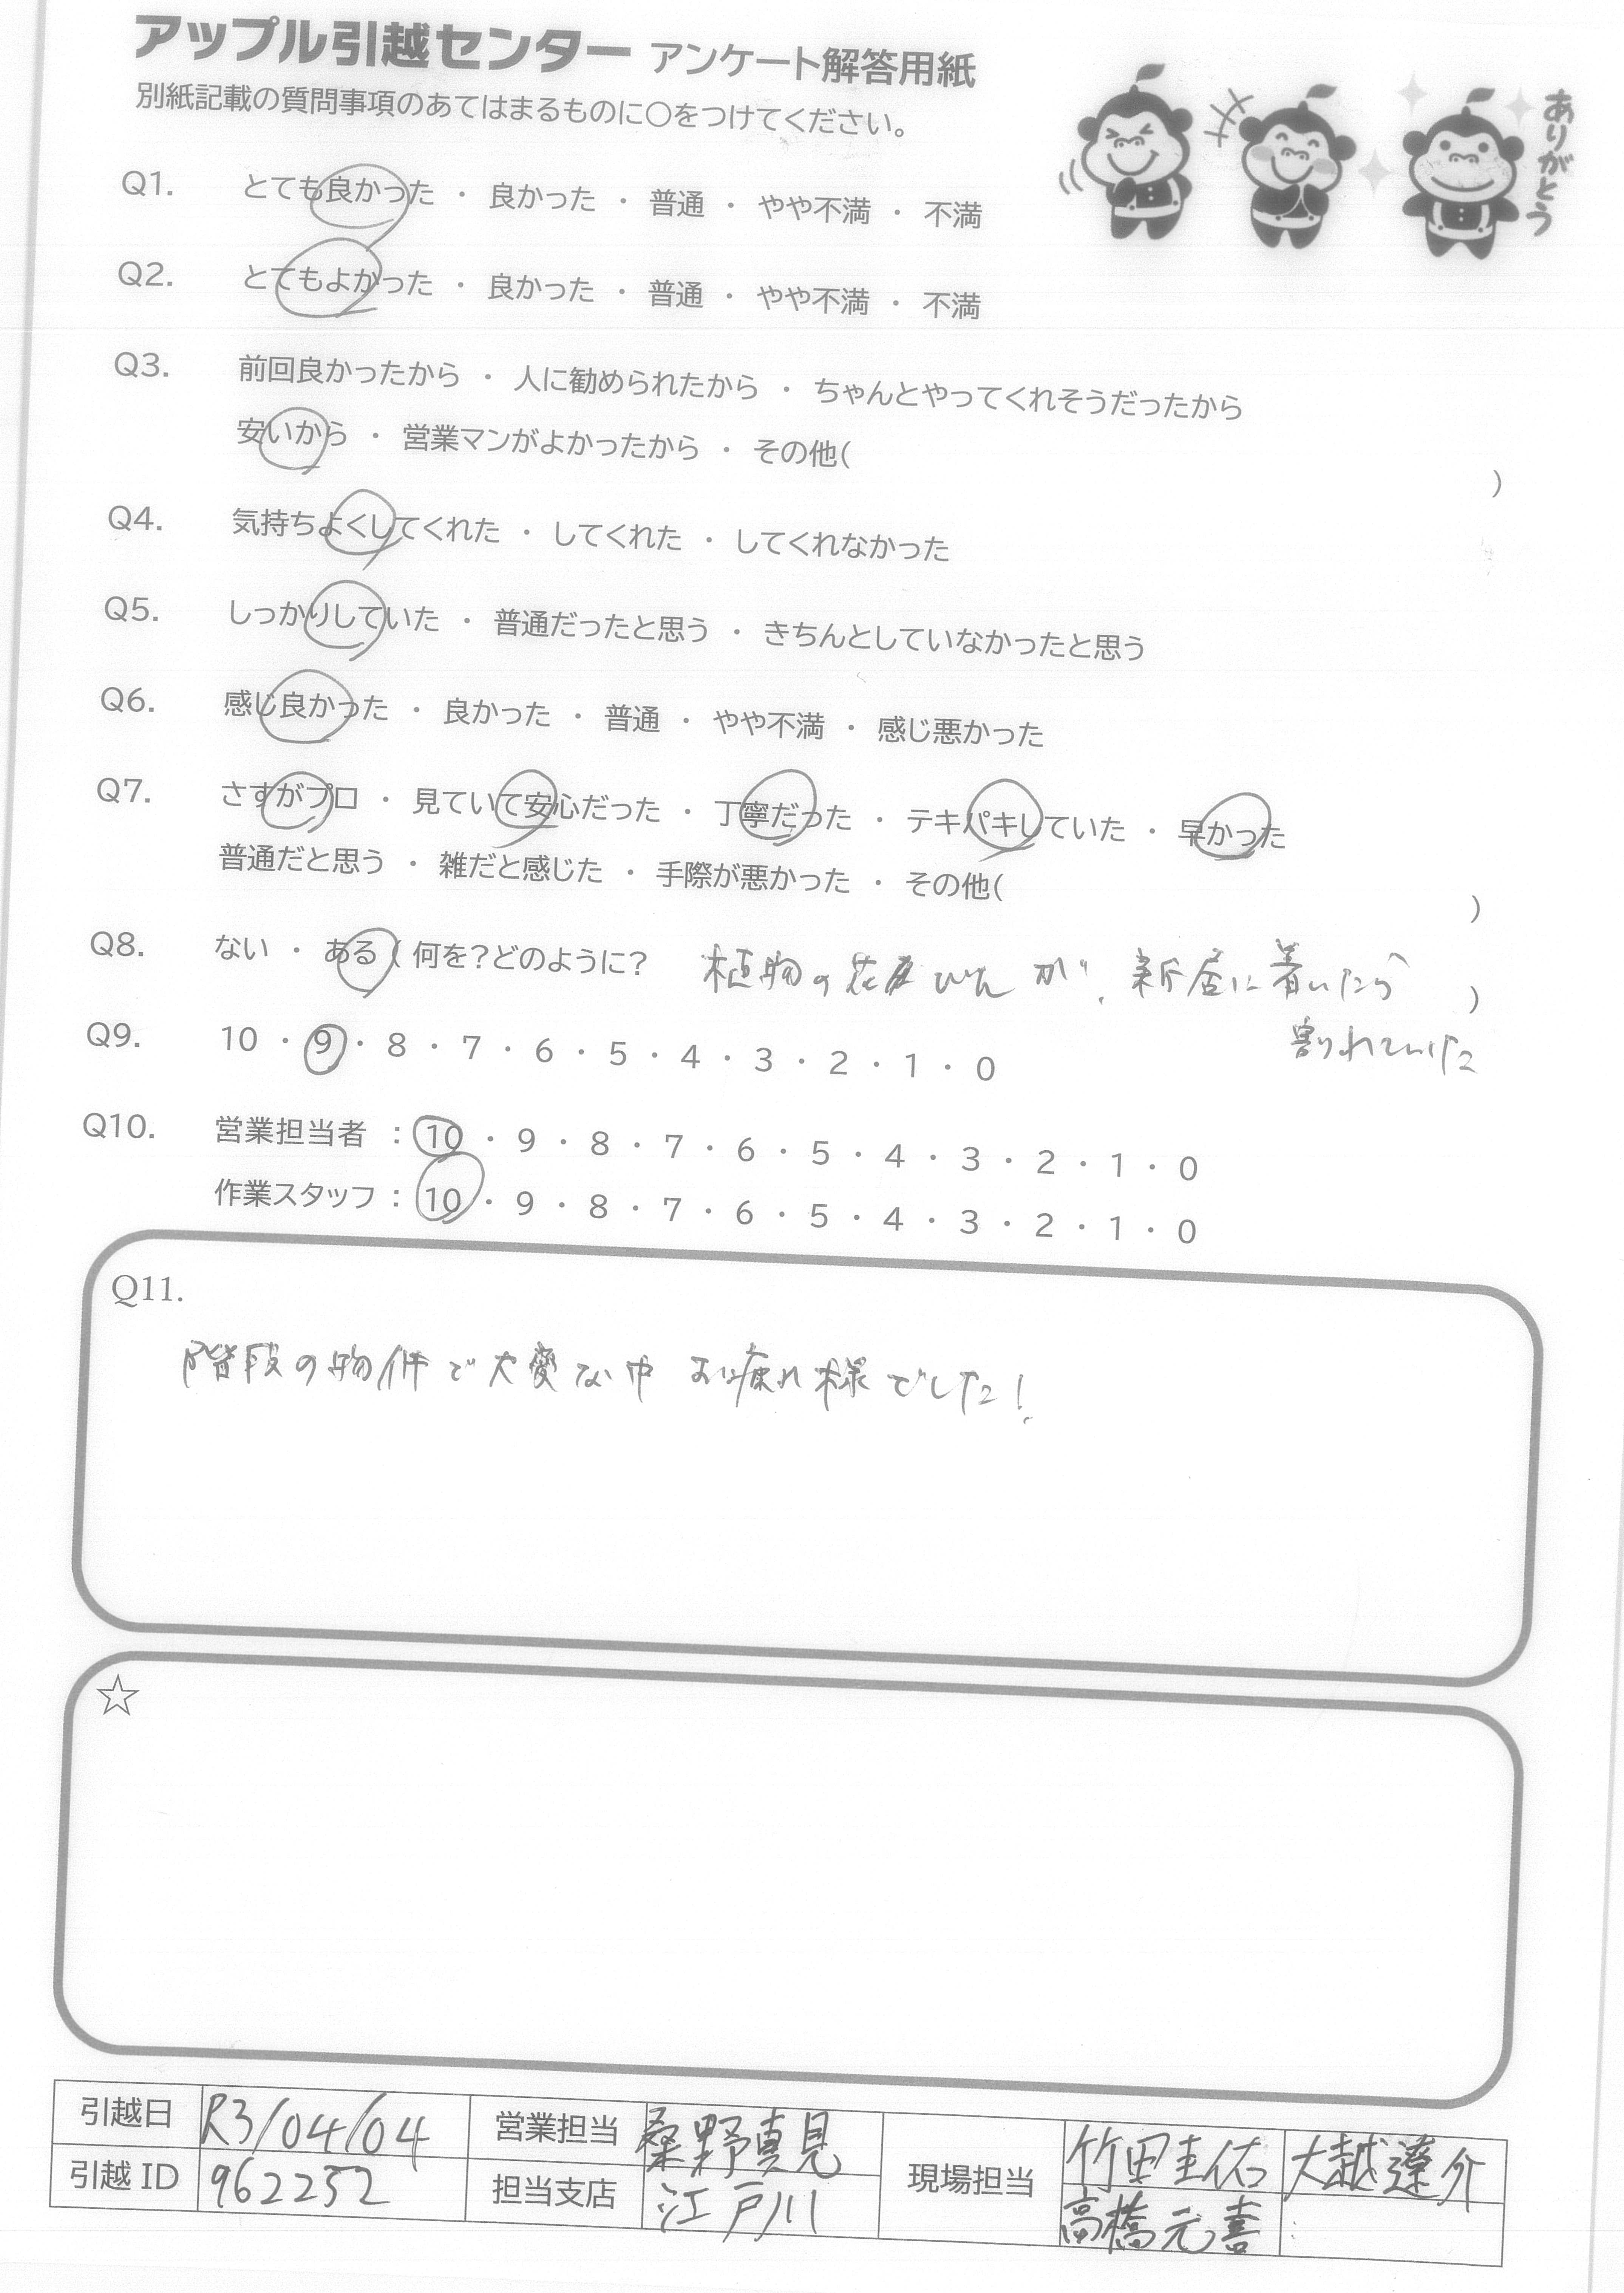 アップル引越センター アンケート解答用紙
別紙記載の質問事項のあてはまるものに〇をつけてください。
ありがとう
Q1. とても良かった ・ 良かった ・ 普通 ・ やや不満 ・ 不満
Q2. とてもよかった ・ 良かった ・ 普通 ・ やや不満 ・ 不満
Q3. 前回良かったから ・ 人に勧められたから ・ ちゃんとやってくれそうだったから
安いから ・ 営業マンがよかったから ・ その他( )
Q4. 気持ちよくしてくれた ・ してくれた ・ してくれなかった
Q5. しっかりしていた ・ 普通だったと思う ・ きちんとしていなかったと思う
Q6. 感じ良かった ・ 良かった ・ 普通 ・ やや不満 ・ 感じ悪かった
Q7. さすがプロ ・ 見ていて安心だった ・ 丁寧だった ・ テキパキしていた ・ 早かった
普通だと思う ・ 雑だと感じた ・ 手際が悪かった ・ その他( )
Q8. ない ・ ある ( 何を?どのように? 植物の花びんが、新居に着いたら )
割れていた
Q9. 10 ・ 9 ・ 8 ・ 7 ・ 6 ・ 5 ・ 4 ・ 3 ・ 2 ・ 1 ・ 0
Q10. 営業担当者 : 10 ・ 9 ・ 8 ・ 7 ・ 6 ・ 5 ・ 4 ・ 3 ・ 2 ・ 1 ・ 0
作業スタッフ : 10 ・ 9 ・ 8 ・ 7 ・ 6 ・ 5 ・ 4 ・ 3 ・ 2 ・ 1 ・ 0
Q11.
階段の物件で大変な中 お疲れ様でした!
☆
引越日 R3/04/04 営業担当 桑野真見 現場担当 竹田圭佑 大越遼介
引越ID 962252 担当支店 江戸川 高橋元喜